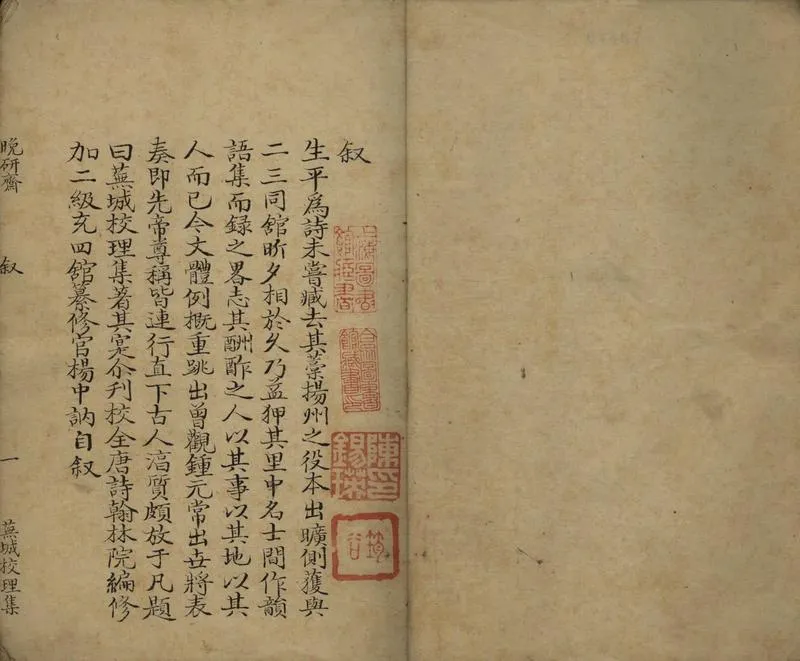 叙
生平爲詩未嘗臧去其藁揚州之役本出曠側獲與
二三同舘昕夕相於久乃益狎其里中名士間作韻
語集而録之畧志其酬酢之人以其事以其地以其
人而已今文體例概重跳出曾觀鍾元常出世將表
奏即先帝尊稱皆連行直下古人湻質頗放于凡題
曰蕪城校理集著其寔尒刋校全唐詩翰林院編修
加二級充四舘纂修官楊中訥自叙
晚研齋
叙
一
蕪城校理集
上海圖書館藏書